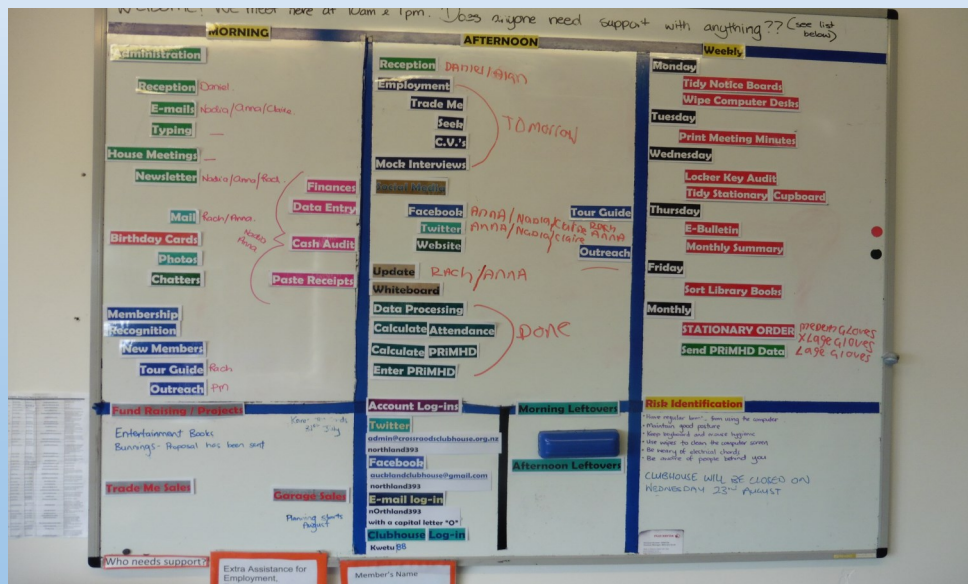 WELCOME! We meet here at 10am & 1pm. Does anyone need support with anything?? (see list below)
MORNING
Administration
Reception Daniel.
E-mails Nadia/Anna/Claire.
Typing —
House Meetings —
Newsletter Nadia/Anna/Rach.
Finances
Data Entry
Mail Rach/Anna.
Nadia
Anna
Birthday Cards
Cash Audit
Photos
Chatters
Paste Receipts
Membership
Recognition
New Members
Tour Guide Rach
Outreach
AFTERNOON
Reception DANIEL/Alan
Employment
Trade Me
Seek
C.V.'s
Mock Interviews
TOMORROW
Social Media
Facebook ANNA/Nadia/Claire
Twitter ANNA/Nadia/Claire
Website
Tour Guide
Rach
ANNA
Outreach
Update RACH/ANNA
Whiteboard
Data Processing
Calculate Attendance
Calculate PRIMHD
Enter PRIMHD
DONE
Weekly
Monday
Tidy Notice Boards
Wipe Computer Desks
Tuesday
Print Meeting Minutes
Wednesday
Locker Key Audit
Tidy Stationary Cupboard
Thursday
E-Bulletin
Monthly Summary
Friday
Sort Library Books
Monthly
STATIONARY ORDER
Gloves
XLage Gloves
Lage Gloves
Send PRIMHD Data
Fund Raising / Projects
Entertainment Books
Bunnings - Proposal has been sent
July
Trade Me Sales
Garage Sales
Planning starts
August
Account Log-ins
Twitter
admin@crossroadsclubhouse.org.nz
northland393
Facebook
aucklandclubhouse@gmail.com
northland393
E-mail log-in
nOrthland393
with a capital letter "O"
Clubhouse Log-in
Kwetu88
Morning Leftovers
Afternoon Leftovers
Risk Identification
• Have regular from using the computer
• Maintain good posture
• Keep keyboard and mouse hygiene
• Use wipes to clean the computer screen
• Be weary of electrical chords
• Be aware of people behind you
CLUBHOUSE WILL BE CLOSED ON
WEDNESDAY 23rd AUGUST
Who needs support?
Extra Assistance for
Employment,
Member's Name